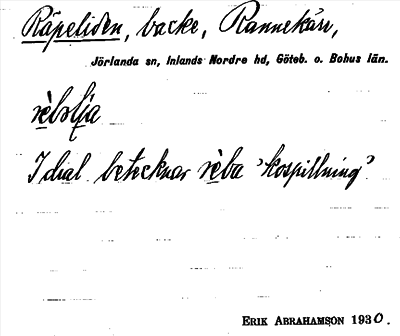 Räpeliden, backe, Rannekärr,
Jörlanda sn, Inlands Nordre hd, Göteb. o. Bohus län.
I dial. betecknar rèba 'kospillning'.
ERIK ABRAHAMSON 1930.